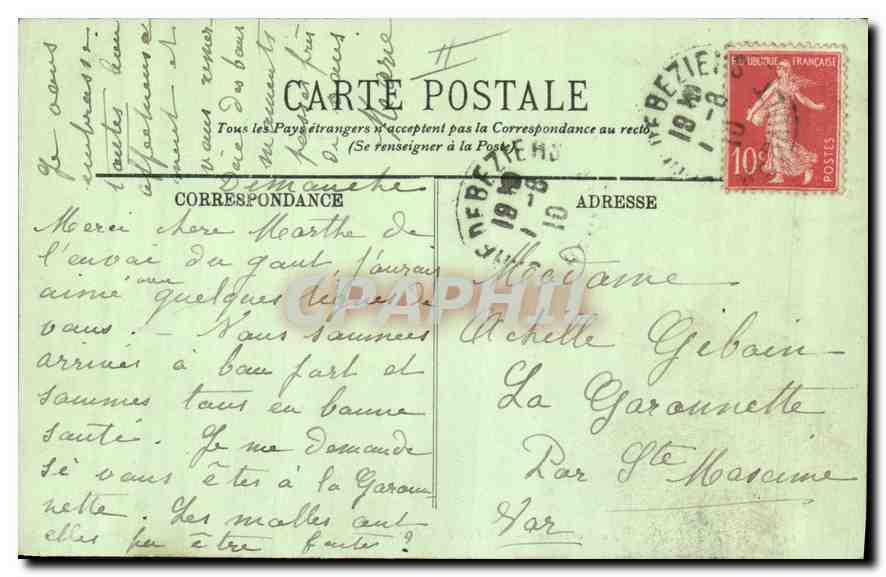 CARTE POSTALE
Tous les Pays étrangers n'acceptent pas la Correspondance au recto
(Se renseigner à la Poste)
CORRESPONDANCE
ADRESSE
REPUBLIQUE FRANÇAISE
10c
POSTES
DE BEZIERS
19 -8
1 10
DE BEZIERS
19 -8
1 10
Dimanche
Merci chere Marthe de
l'envoi du gant, j'aurais
aimé avoir quelques lignes de
vous. - Nous sommes
arrivés à bon port et
sommes tous en bonne
santé. Je me demande
si vous êtes à la Garon-
nette. Les malles ont
elles pu être faites?
Je vous
embrasse
toutes bien
affectueuse
ment et
vous remer-
cie des bons
moments
passés près
de vous
Marie
Madame
Achille Giboin
La Garonnette
Par Ste Maxime
Var
CPAPHIL